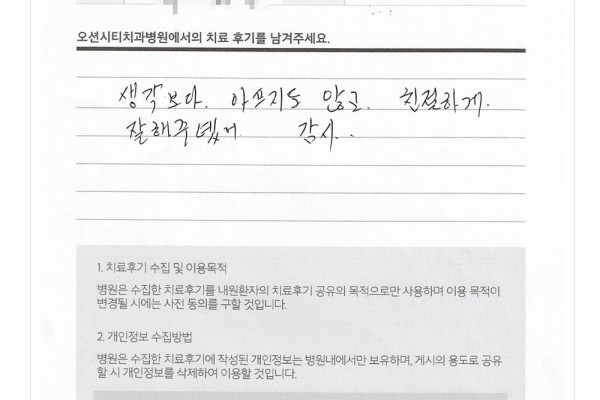 오션시티치과병원에서의 치료 후기를 남겨주세요.
생각보다. 아프지도 않고. 친절하게.
잘해주셨어 감사..
1. 치료후기 수집 및 이용목적
병원은 수집한 치료후기를 내원환자의 치료후기 공유의 목적으로만 사용하며 이용 목적이
변경될 시에는 사전 동의를 구할 것입니다.
2. 개인정보 수집방법
병원은 수집한 치료후기에 작성된 개인정보는 병원내에서만 보유하며, 게시의 용도로 공유
할 시 개인정보를 삭제하여 이용할 것입니다.